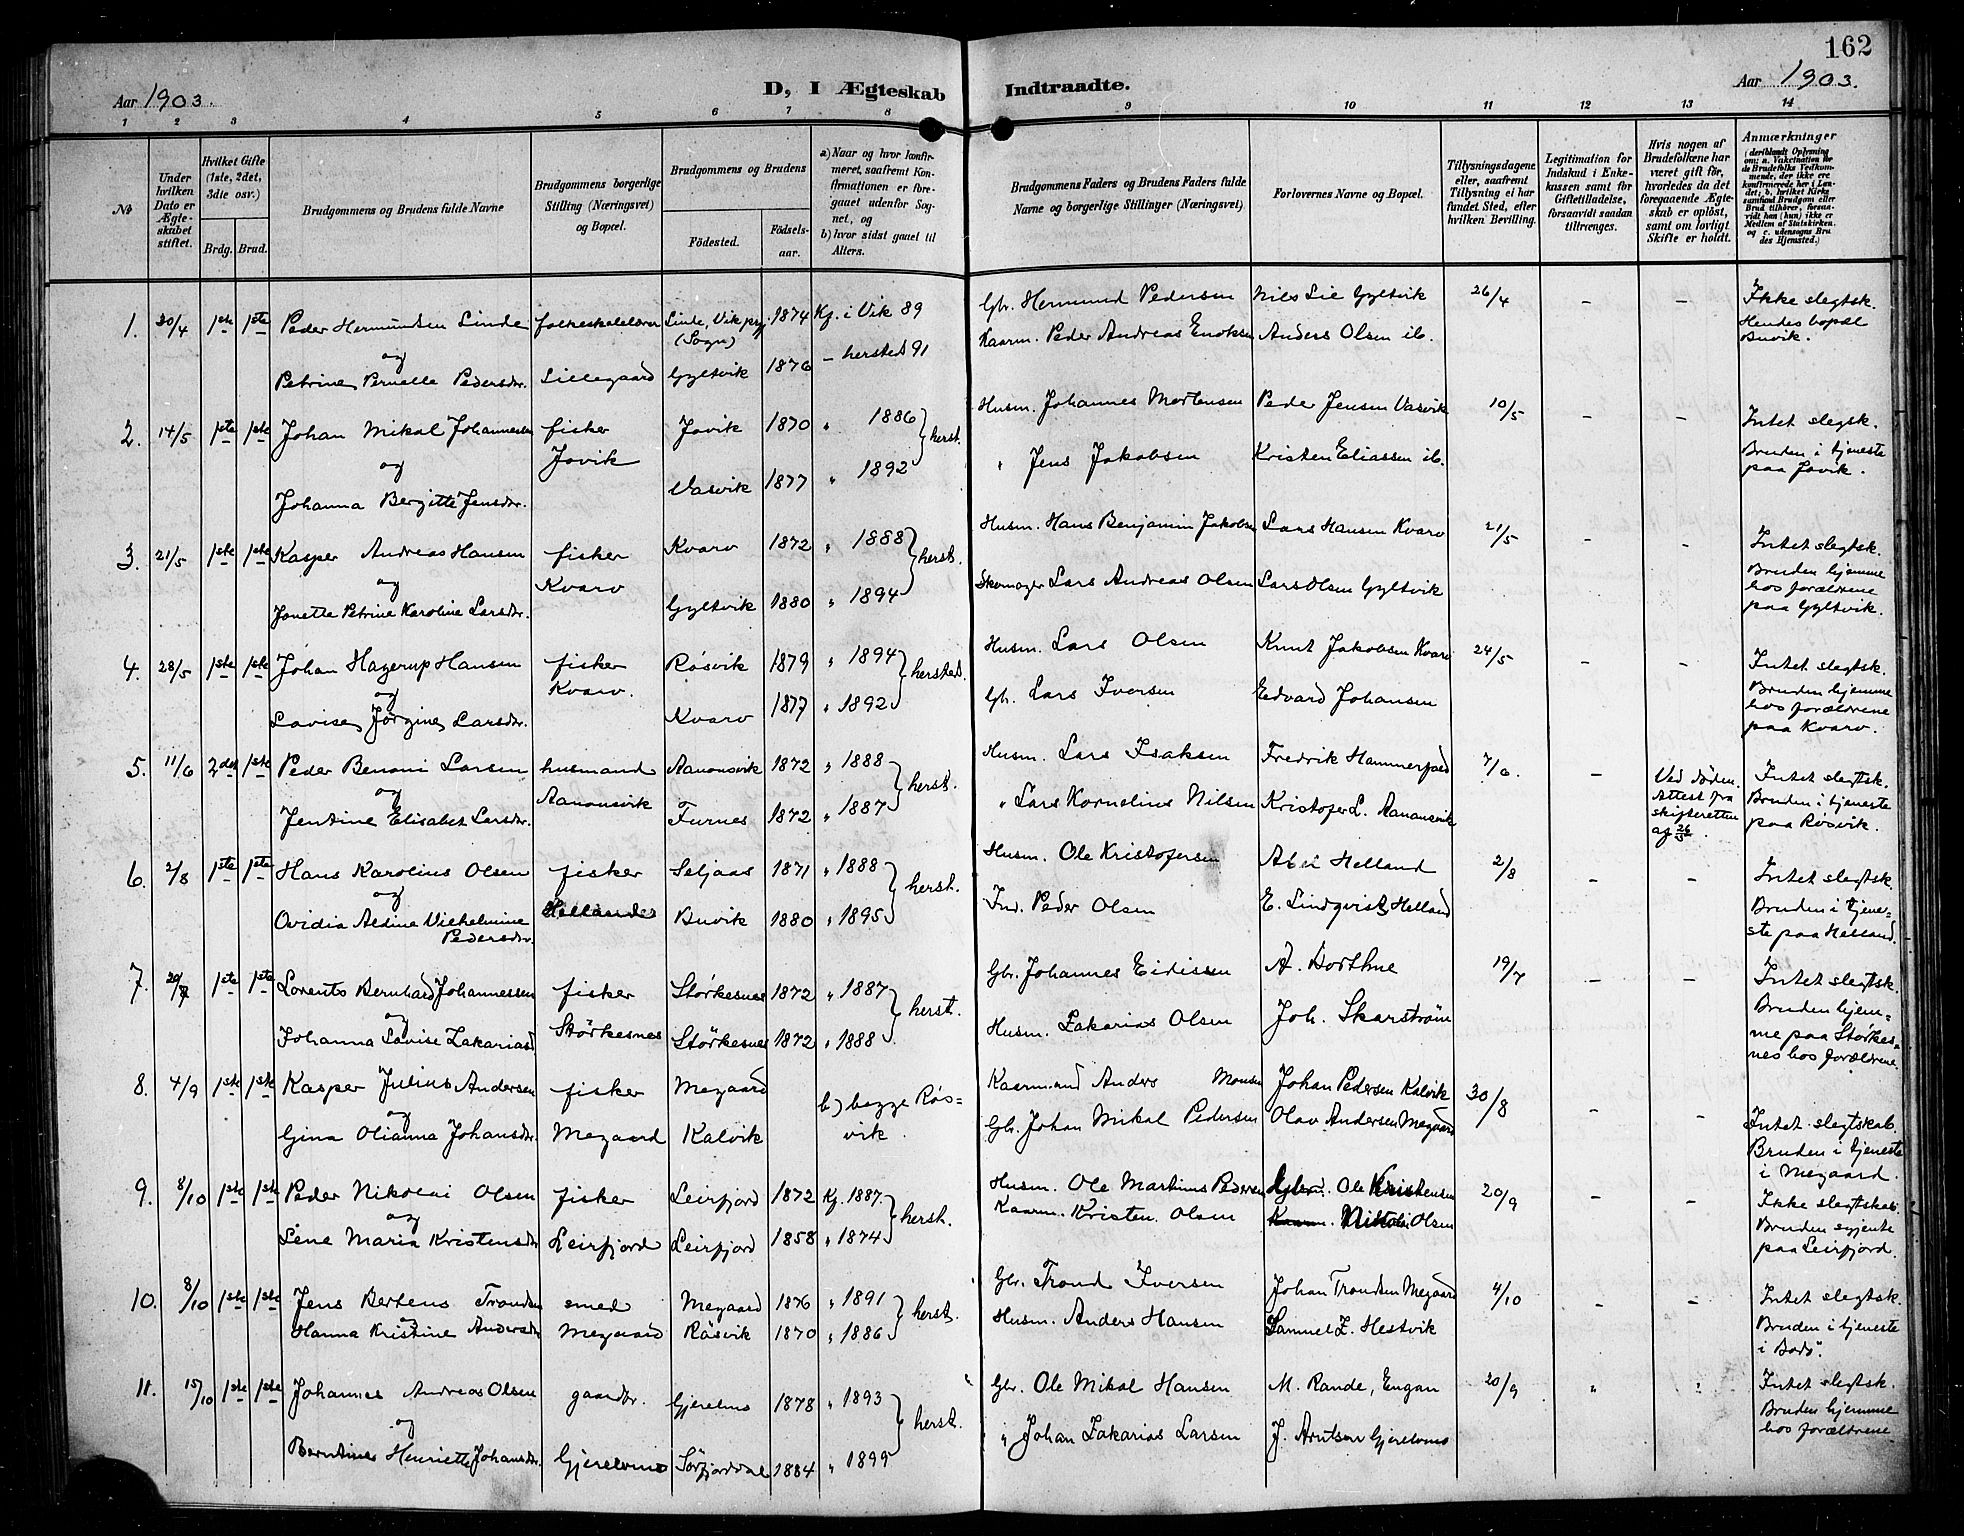 162
Aar 1903.
D, I Ægteskab Indtraadte.
Aar 1903.
1 2 3 4 5 6 7 8 9 10 11 12 13 14
No
Under hvilken Dato er Ægteskabet stiftet.
Hvilket Gifte (1ste, 2det, 3die osv.)
Brdg. Brud.
Brudgommens og Brudens fulde Navne
Brudgommens borgerlige Stilling (Næringsvei) og Bopæl.
Brudgommens og Brudens
Fødested. Fødselsaar.
a) Naar og hvor konfirmeret, saafremt Konfirmationen er foregaaet udenfor Sognet, og
b) hvor sidst gaaet til Alters.
Brudgommens Faders og Brudens Faders fulde Navne og borgerlige Stillinger (Næringsvei)
Forlovernes Navne og Bopæl.
Tillysningsdagene eller, saafremt Tillysning ei har fundet Sted, efter hvilken Bevilling.
Legitimation for Indskud i Enkekassen samt for Giftetilladelse, forsaavidt saadan tiltrænges.
Hvis nogen af Brudefolkene har været gift før, hvorledes da det foregaaende Ægteskab er opløst, samt om lovligt Skifte er holdt.
Anmærkninger
(deriblandt Oplysning om: a. Vaccination for de Brudefolks Vedkommende, der ikke ere konfirmerede her i Landet; b. hvilket Kirkesamfund Brudgom eller Brud tilhører, forsaavidt han (hun) ikke er Medlem af Statskirken. og c. udensogns Brudes Hjemsted.)
1. 30/4 1ste 1ste Peder Hermundsen Linde folkeskolelærer Linde, Vik prgj. 1874 Kf. i Vik 89 Gbr. Hermund Pedersen Nils Lie Gyltvik 26/4 – – Ikke slegtsk.
og (Sogn) – hersteds 91 Kaarm. Peder Andreas Enoksen Anders Olsen ib. Hendes bopæl
Petrine Pernelle Pedersdr. Lillegaard Gyltvik 1876 Buvik.
2. 14/5 1ste 1ste Johan Mikal Johannessen fisker Jovik 1870 " 1886 } herst. Husm. Johannes Mortensen Peder Jensen Vasvik 10/5 – – Intet slegsk.
og Jovik Bruden i tjeneste
Johanna Bergitte Jensdr. Vasvik 1877 " 1892 " Jens Jakobsen Kristen Eliassen ib. paa Jovik.
3. 21/5 1ste 1ste Kasper Andreas Hansen fisker Kvarv 1872 " 1888 } herst. Husm. Hans Benjamin Jakobsen Lars Hansen Kvarv 21/5 – – Intet slegtsk.
og Kvarv Bruden hjemme
Jonette Petrine Karoline Larsdr. Gyltvik 1880 " 1894 Skomager Lars Andreas Olsen Lars Olsen Gyltvik hos forældrene
paa Gyltvik.
4. 28/5 1ste 1ste Johan Hagerup Hansen fisker Røsvik 1879 " 1894 } hersteds. Husm. Lars Olsen Knut Jakobsen Kvarv 24/5 – – Intet slegtsk.
og Kvarv. Bruden hjemme
Lovise Jørgine Larsdr. Kvarv 1877 " 1892 Gb. Lars Iversen Edvard Johansen hos forældrene
paa Kvarv.
5. 11/6 2det 1ste Peder Benoni Larsen husmand Aanonsvik 1872 " 1888 } herst. Husm. Lars Isaksen Fredrik Hammerfald 7/6. – Ved døden. Intet slegtsk.
og Aanonsvik Attest fra Bruden i tjeneste
Jentine Elisabet Larsdr. Furnes 1872 " 1887 " Lars Kornelius Nilsen Kristofer L. Aanonsvik skifteretten paa Røsvik.
af 26/5
6. 2/8 1ste 1ste Hans Karolius Olsen fisker Seljaas 1871 " 1888 } herst. Husm. Ole Kristofersen Helland 2/8 – – Intet slegtsk.
og Bruden i tjene-
Ovidia Aldine Vilhelmine Pedersdr. Hellandes Buvik 1880 " 1895 Ind. Peder Olsen E. Lindqvist, Helland ste paa Helland.
7. 1ste 1ste Lorents Bernhard Johannessen fisker Størkesnes 1872 " 1887 } herst. Gbr. Johannes Eidissen A. Dorthne 19/7 – – Intet slegtsk.
og Bruden hjem-
Johanna Lovise Zakariasd Størkesnes Størkesnes 1872 " 1888 Husm. Zakarias Olsen Joh. Skarstrøm me paa Størkes-
nes hos forældrene.
8. 4/9 1ste 1ste Kasper Julius Andersen fisker Megaard b) begge Røs- Kaarmand Anders Monsen Johan Pedersen Kalvik 30/8 – – Intet slegtskab.
og vik Bruden i tjeneste
Gina Olianna Johansdr. Megaard Kalvik Gb. Johan Mikal Pedersen Olav Andersen Megaard i Megaard.
9. 8/10 1ste 1ste Peder Nikolai Olsen fisker Leirfjord 1872 Kf. 1887. } hersk. Husm. Ole Martinus Pedersen Ole Kristensen 20/9 – – Ikke slegtskab.
og Bruden syjente
Lene Maria Kristensdr Leirfjord Leirfjord 1858 " 1874 Kaarm. Kristen Olsen Nikolai Olsen paa Leirfjord.
10. 8/10 1ste 1ste Jens Bertens Trondsen smed Megaard 1876 " 1891 } herst. Gb. Trond Iversen Johan Trondsen Megaard 4/10 – – Intet slegtsk.
og Bruden i tjeneste
Hanna Kristine Andersdr Megaard Røsvik 1870 " 1886 Husm. Anders Hansen Samuel Z. Hestvik i Bodø.
11. 15/10 1ste 1ste Johannes Andreas Olsen gaardbr. Gjerelvnes 1878 " 1893 } herst. Gbr. Ole Mikal Hansen M. Rande, Engan 20/9 " " Intet slegtsk.
og Bruden hjemme
Berntine Henriette Johansdr. Gjerelvnes Sørfjorddal 1884 " 1899 " Johan Zakarias Larsen J. Arntsen Gjerelvnes hos forældrene